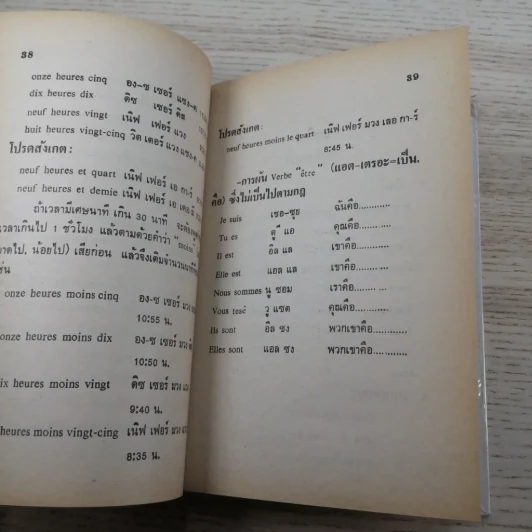 38
onze heures cinq อง-ซ เซอร์ แซง-ค
dix heures dix ดิซ เซอร์ ดิส
neuf heures vingt เนิฟ เฟอร์ แวง
huit heures vingt-cinq วิต เตอร์ แวง แซง-ค
โปรดสังเกต:
neuf heures et quart เนิฟ เฟอร์ เอ กา-ร์
neuf heures et demie เนิฟ เฟอร์ เอ
ถ้าเวลามีเศษนาที เกิน 30 นาที
เวลาเกินไป 1 ชั่วโมง แล้วตามด้วยคำว่า
ไป, น้อยไป) เสียก่อน แล้วจึงเติมจำนวนนาที
onze heures moins cinq อง-ซ เซอร์ มวง
10:55 น.
onze heures moins dix อง-ซ เซอร์ มวง
10:50 น.
dix heures moins vingt ดิซ เซอร์ มวง
9:40 น.
heures moins vingt-cinq เนิฟ เฟอร์ มวง
8:35 น.
39
โปรดสังเกต:
neuf heures moins le quart เนิฟ เฟอร์ มวง เลอ กา-ร์
8:45 น.
-การผัน Verbe "être" (แอต-เตรอะ=เป็น,
คือ) ซึ่งไม่เป็นไปตามกฎ
Je suis เชอ-ซุย ฉันคือ............
Tu es ตู แอ คุณคือ............
Il est อิล แล เขาคือ............
Elle est แอล แล เขาคือ............
Nous sommes นู ซอม เราคือ............
Vous วู แซต คุณคือ............
Ils sont อิล ซง พวกเขาคือ............
Elles sont แอล ซง พวกเขาคือ............